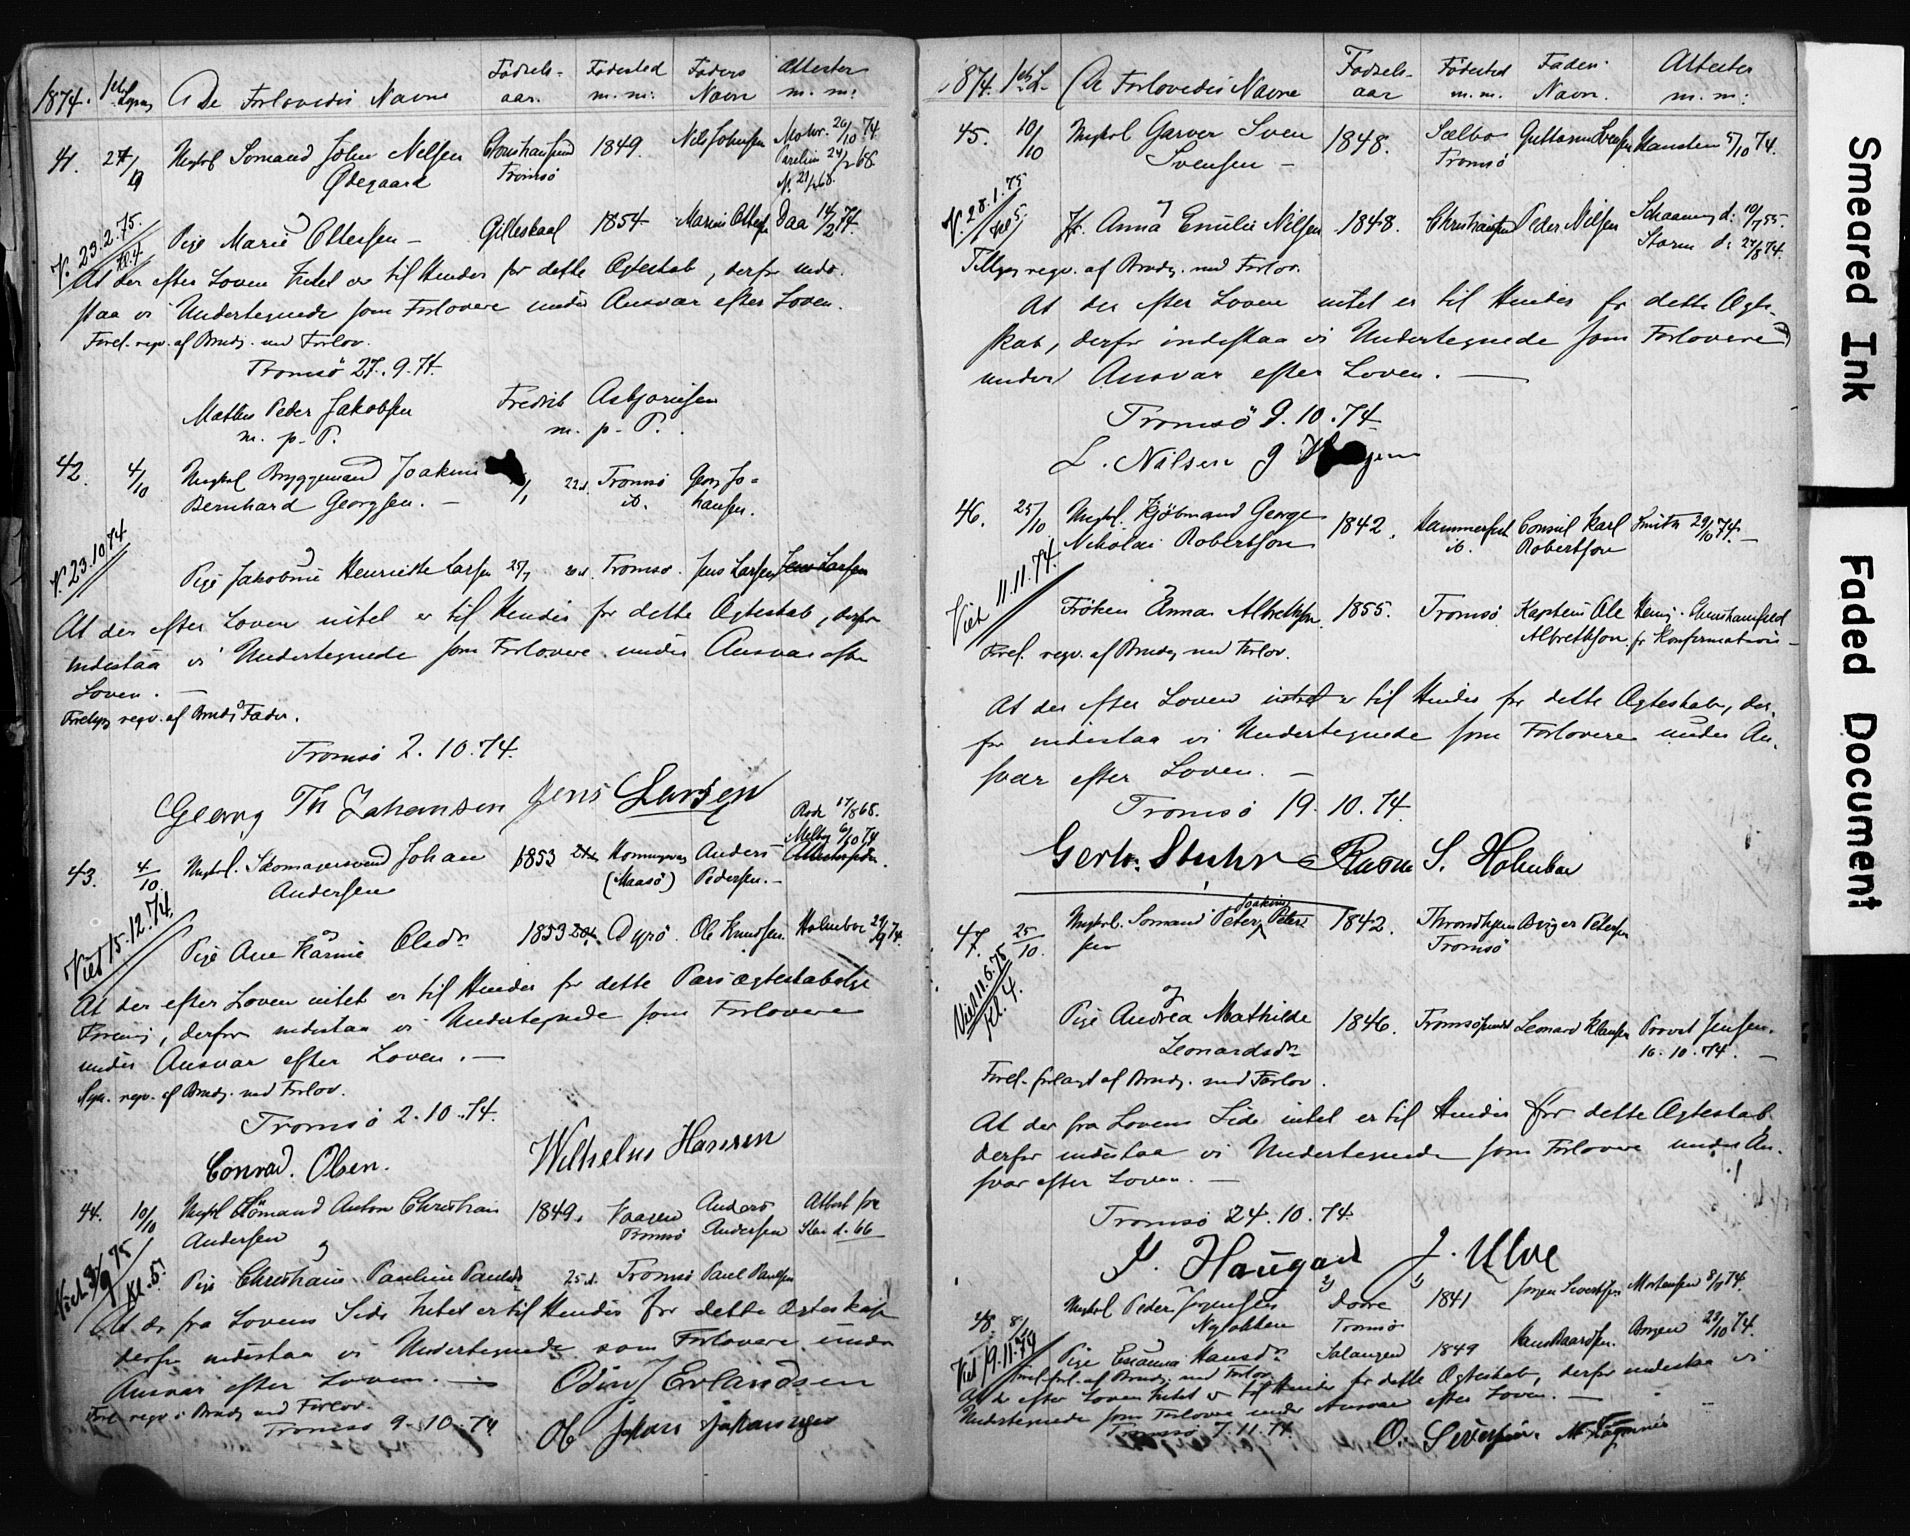 1874. De Forlovedes Navne Fødsels- Fødested Faders Attester
aar. m. m: Navn m. m:
41. 27/9 Ungkarl Sømand John Nilsen Christiansund 1849. Nils 26/10 74.
Ødegaard Tromsø 24/2 68
V. 23.2.75. Pige Marie Ottersen – Gilleskaal 1854 Marius Daa 14/2 74
Kl. 4
At der efter Loven Intet er til Hinder for dette Ægteskab, derfor inde-
staa vi Undertegnede som Forlovere under Ansvar efter Loven.
Forel. regv. af Brudg. med Forlov.
Tromsø 27.9.74.
Mathis Peder Jakobsen Fredrik Asbjørnsen
m. p. P. m. p. P.
42. 4/10 Ungkarl Bryggemand Joakim /1 22 Tromsø Georg Jo-
Bernhard Georgsen. – ib. hansen.
V. 23.10.74
Pige Jakobine Henriette Larsen 25/7 Tromsø. Jens Larsen Jens Larsen
At der efter Loven intet er til Hinder for dette Ægteskab, derfor
indestaa vi Undertegnede som Forlovere under Ansvar efter
Loven. –
regv. af Bruds Fader.
Tromsø 2.10.74.
Georg Th Johansen Jens Larsen
17/8 68.
Melbg 6/10 74
43. 4/10. Ungkarl. Skomagersvend Johan 1853 Honningsvaag Anders
Andersen (Maasø) Pedersen. –
Viet 15.12.74.
Pige Ane Karine Olsdr 1853 Ole Knudsen Holmboe 29/9 74.
At der efter Loven intet er til Hinder for dette Pars ægteskabelige
Forening, derfor indestaa vi Undertegnede som Forlovere
under Ansvar efter Loven. –
regv. af Brudg. med Forlov.
Tromsø 2.10.74.
Conrad. Olsen. Wilhelm Hansen
44. 10/10 Ungkl Sømand Anton Christian 1849. Vaagen Anders Attest fra
Andersen Tromsø Andersen d. 66
Viet 75
Kl. 5.
Pige Christiane Pauline Paulsdr 25 Tromsø Paul Paulsen
At der fra Lovens Side Intet er til Hinder for dette Ægteskab
derfor indestaa vi Undertegnede som Forlovere under
Ansvar efter Loven. – Odin Erlandsen
Forel. regv. Brudg med Forlov.
Tromsø 9.10.74 Johan Johannesen
1874. De Forlovedes Navne Fødsels- Fødested Faders Attester
aar m. m. Navn. m. m:
45. 10/10 Ungkarl Garver Sven 1848. Sælbo Guttorm Svensen Hansteen 5/10 74.
Svensen – Tromsø
V. 28.1.75
Kl 5
Jfr. Anna Emilie Nilsen 1848. Peder Nilsen Schaaning d: 10/7 55.
Storm d: 27/8 74.
regv. af Brudg. med Forlov.
At der efter Loven intet er til Hinder for dette Ægte-
skab, derfor indestaa vi Undertegnede som Forlovere
under Ansvar efter Loven. –
Tromsø 9.10.74
L. Nilsen
46. 25/10 Ungkl. Kjøbmand George 1842. Hammerfest Consul Karl Smith 29/10 74. –
Nikolai Robertson ib. Robertson
Viet 11.11.74.
Frøken Anna Albrethsen 1855. Tromsø. Kaptein Ole
Albrethson fr Konfirmation –
Forel. regv. af Brudg med Forlov.
At der efter Loven intet er til Hinder for dette Ægteskab, der-
for indestaa vi Undertegnede som Forlovere under An-
svar efter Loven. –
Tromsø 19.10.74.
Gerh. Stuhr Rasm S. Holmboe
Joakim
47. 25/10. Ungkarl. Sømand Peter Peter 1842. Throndhjem Petersen
sen Tromsø
Viet 11.6.75
Kl. 4.
og
Pige Andrea Mathilde 1846. Tromsøsund Leonard Klausen Provst Jensen.
Leonardsdr 16.10.74. –
Forel. forlangt af Brudg. med Forlov.
At der fra Lovens Side intet er til Hinder for dette Ægteskab
derfor indestaa vi Undertegnede som Forlovere under An-
svar efter Loven. –
Tromsø 24.10.74.
P. Haugan J. Ulve
48. 8/11 Ungkarl Peder Jørgensen Dovre 1841 Jørgen Sivertsen Mortensen 8/9 74.
Tromsø
Viet 19.11.74
Pige Hansdr Salangen 1849 Hans 29/10 74.
af Brudg. med Forlov
At der efter Loven Intet er til Hinder for dette Ægteskab, derfor indestaa vi
Undertegnede som Forlovere under Ansvar efter Loven. –
Tromsø 7.11.74.
O. Sivertsen.
Smeared Ink
Faded Document